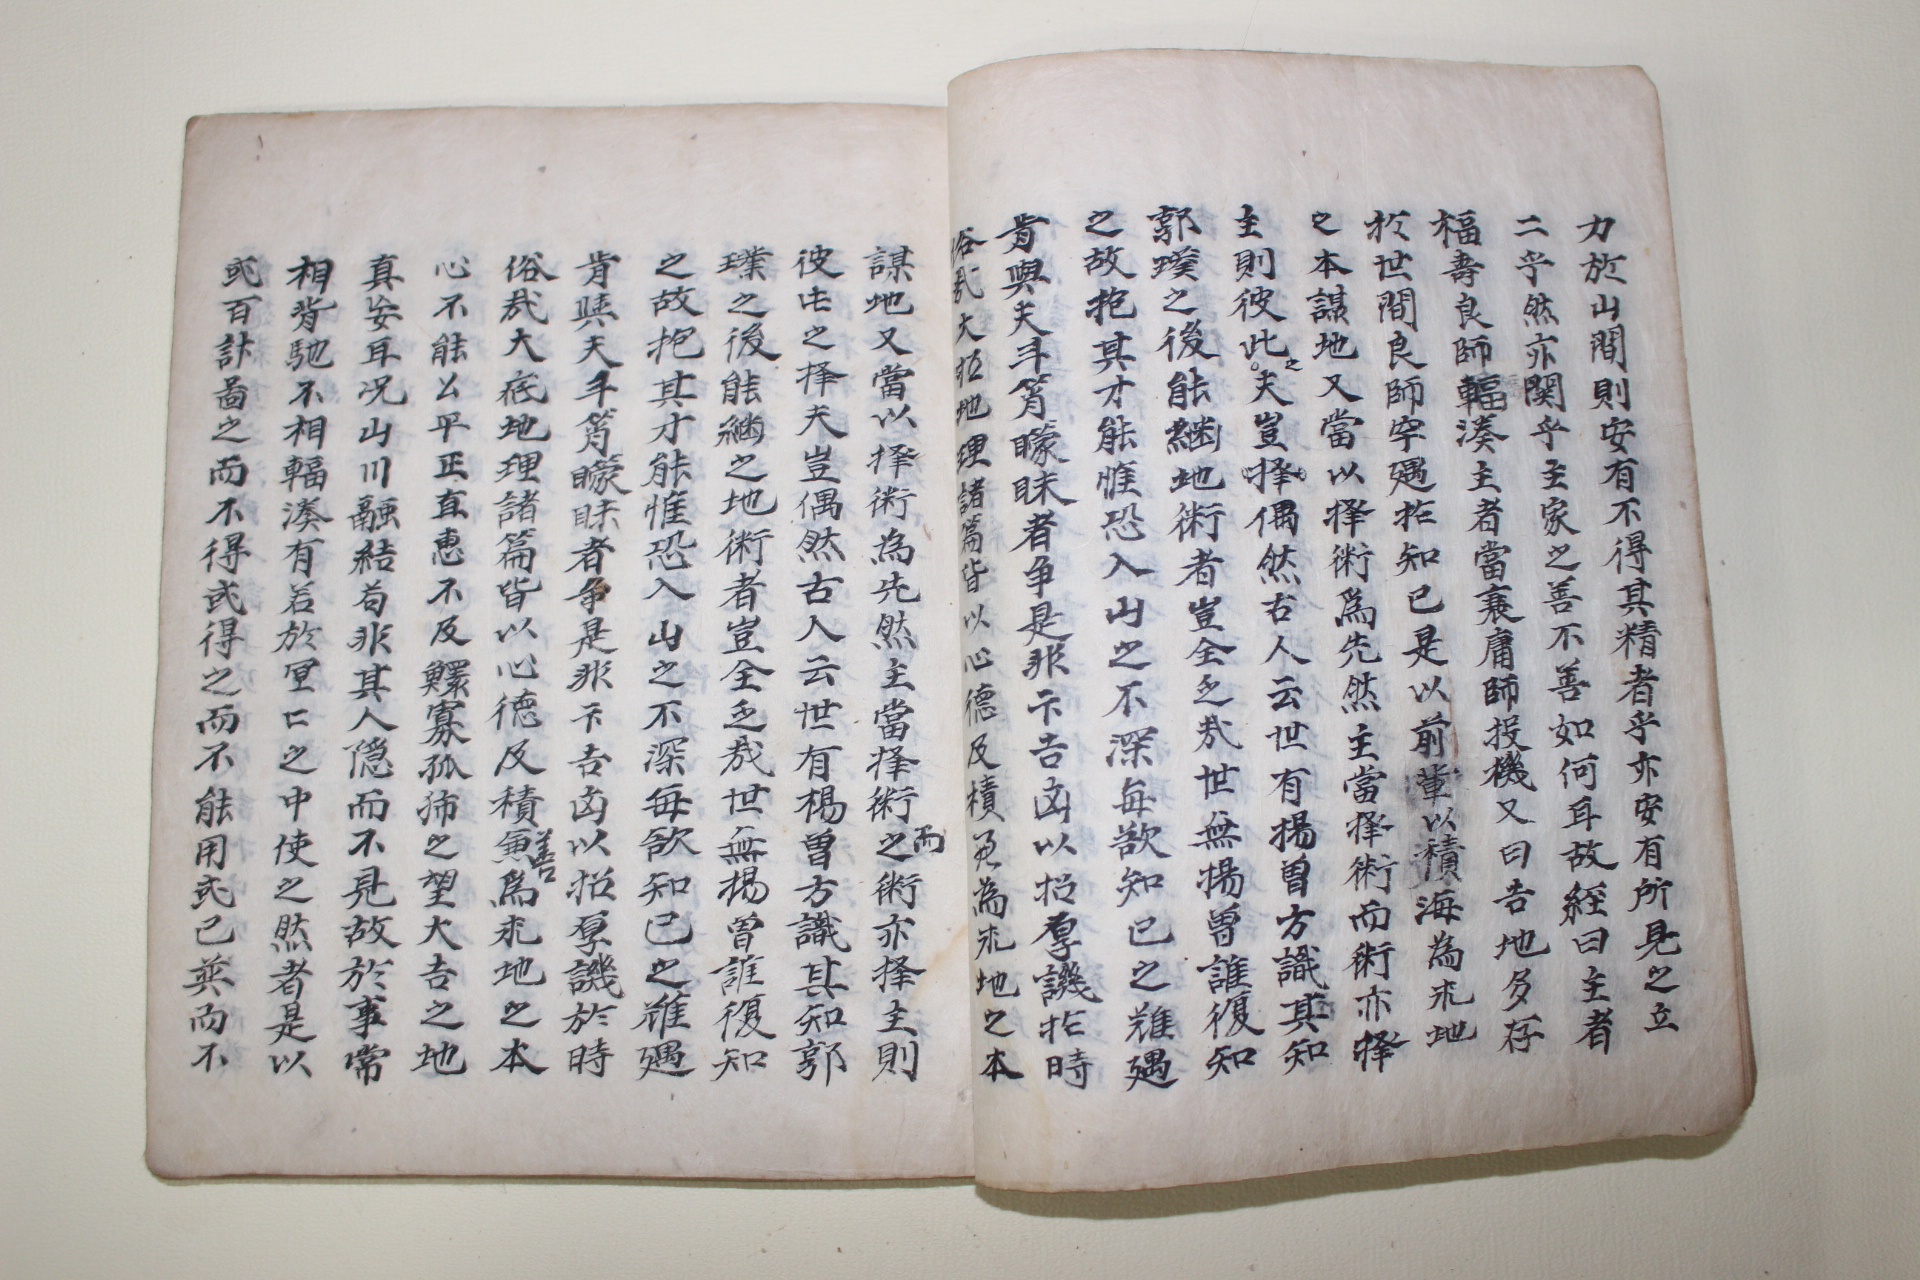 力於山間則安有不得其精者乎亦安有所見之立
二乎然亦関乎主家之善不善如何耳故経曰主者
福壽良師輻湊主者當衰庸師投機又曰吉地多存
於世間良師罕遇於知已是以前輩以積海為求地
之本謀地又當以择術爲先然主當择術而術亦择
主則彼此之夫豈择偶然古人云世有揚曾方識其知
郭璞之後能継地術者豈全乏㢤世無揚曾誰復知
之故抱其才能惟恐入山之不深每欲知已之难遇
肯與夫斗筲矇昧者争是非卞吉凶以招辱譏於時
俗㢤大抵地理諸篇皆以心德及積 為求地之本
謀地又當以择術為先然主當择術之而術亦择主則
彼此之择夫豈偶然古人云世有楊曾方識其知郭
璞之後能継之地術者豈全乏㢤世無楊曾誰復知
之故抱其才能惟恐入山之不深每欲知已之难遇
肯與夫斗筲矇昧者争是非卞吉凶以招辱譏於時
俗㢤大底地理諸篇皆以心德及積善爲求地之本
心不能公平正直惠不及鰥寡孤 之望大吉之地
真妄耳况山川融結苟非其人隐而不見故於事常
相背馳不相輻湊有若於冥 之中使之然者是以
或百計啚之而不得或得之而不能用或已葬而不